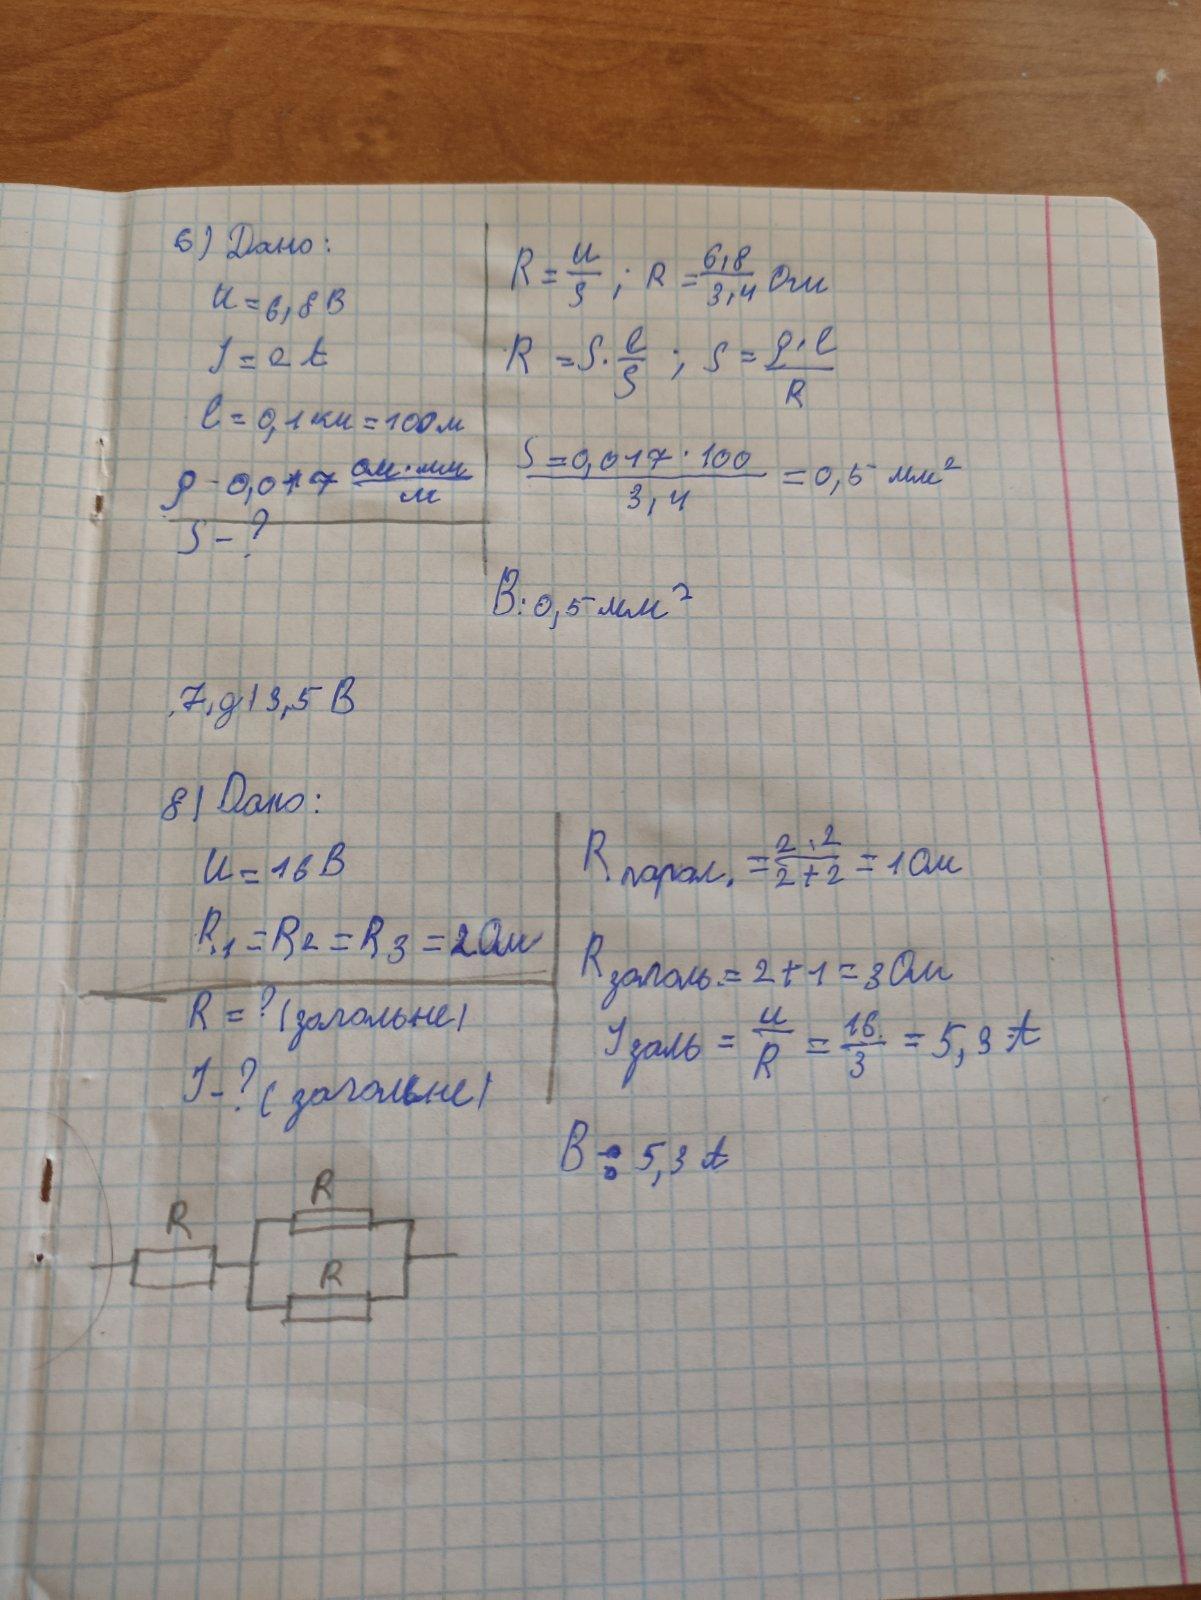 6) Дано:
U = 6,8 В
I = 2 A
l = 0,1 км = 100 м
ρ - 0,017 ом·мм/м
S - ?
R = U/I ; R = 6,8/3,4 Ом
R = ρ · l/S ; S = ρ·l/R
S = 0,017 · 100/3,4 = 0,5 мм²
В: 0,5 мм²
7, д) 3,5 В
8) Дано:
U = 16 В
R₁ = R₂ = R₃ = 2 Ом
R = ? (загальне)
I - ? (загальне)
R парал. = 2·2/2+2 = 1 Ом
R загаль. = 2 + 1 = 3 Ом
I заль = U/R = 16/3 = 5,3 A
В : 5,3 A
R
R
R